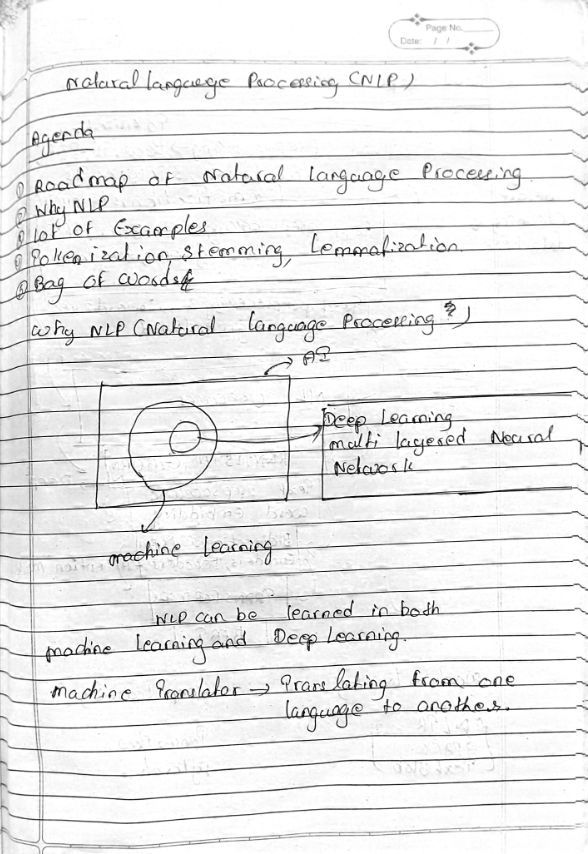 Page No.
Date: / /
Natural language Processing (NLP)
Agenda
① Roadmap of Natural language Processing
② Why NLP
③ lot of Examples
④ Tokenization, Stemming, Lemmatization
⑤ Bag of words
Why NLP (Natural language Processing?)
→ AI
Deep Learning
multi layered Neural
Network
machine Learning
NLP can be learned in both
machine learning and Deep Learning.
machine Translator → Translating from one
language to another.